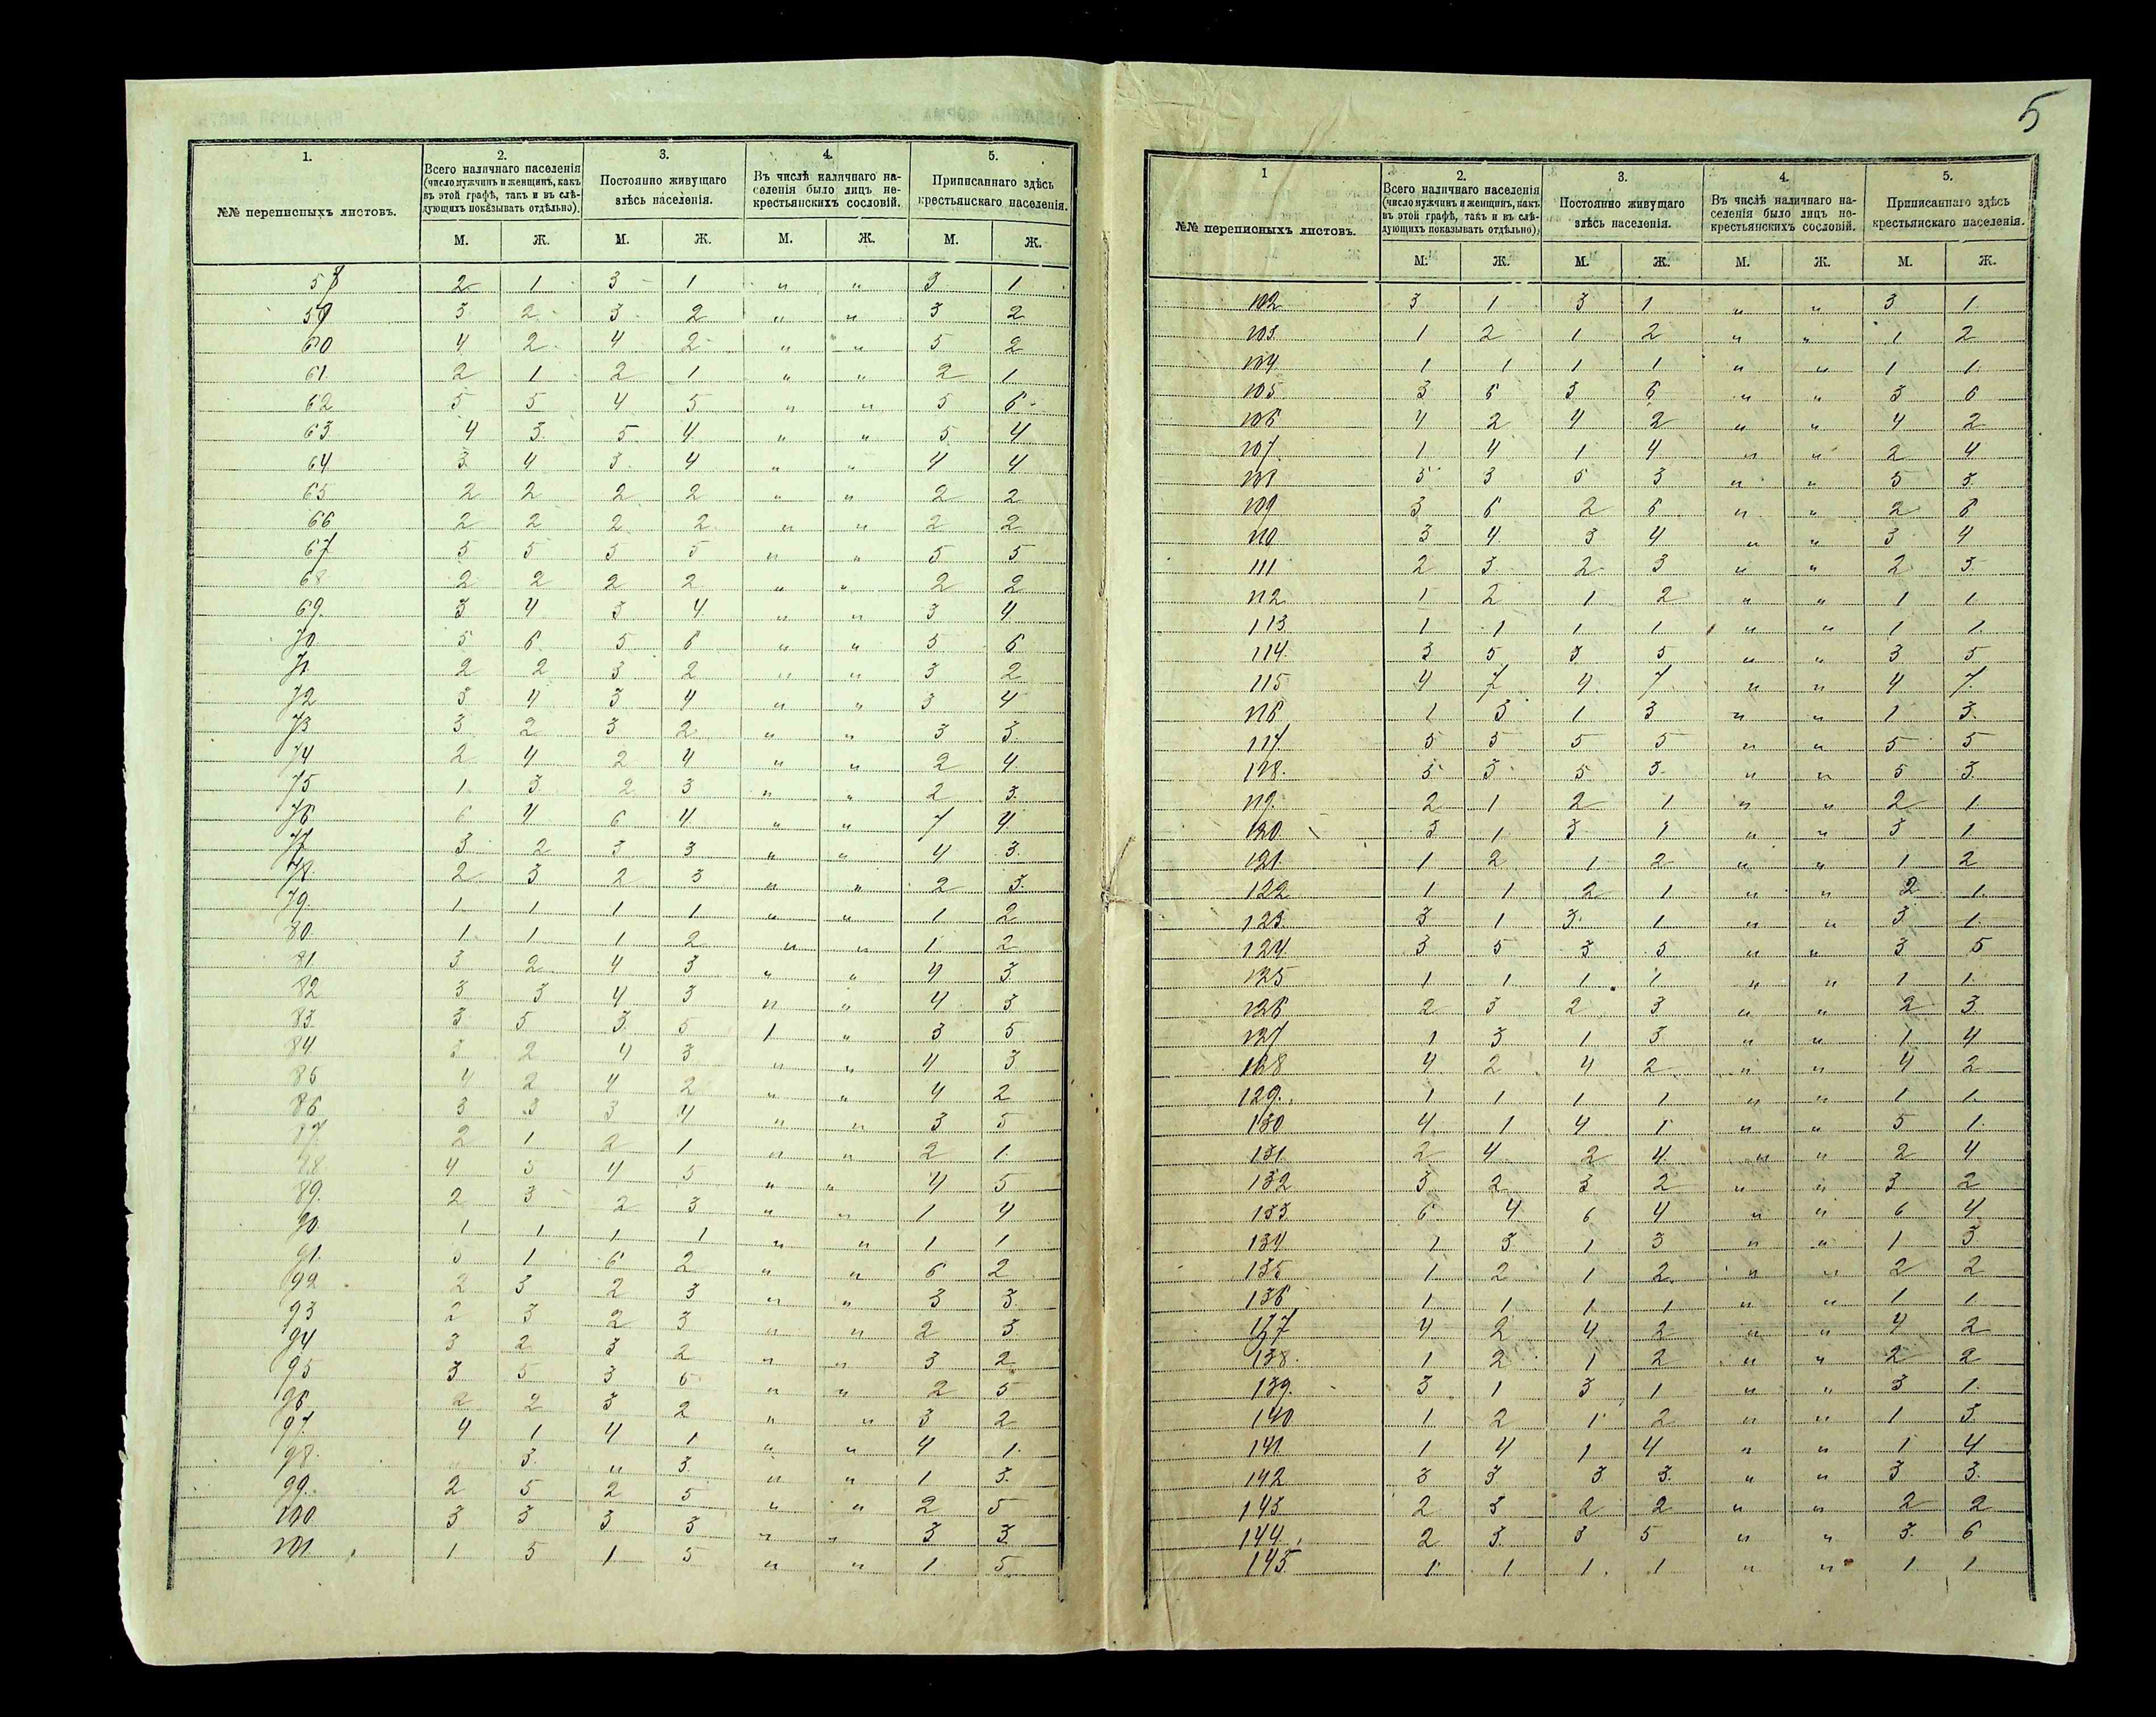 5
1. 2. 3. 4. 5.
№№ переписныхъ листовъ.
Всего наличнаго населенія
(число мужчинъ и женщинъ, какъ
въ этой графѣ, такъ и въ слѣ-
дующихъ показывать отдѣльно).
Постоянно живущаго
здѣсь населенія.
Въ числѣ наличнаго на-
селенія было лицъ не-
крестьянскихъ сословій.
Приписаннаго здѣсь
крестьянскаго населенія.
М. Ж. М. Ж. М. Ж. М. Ж.
58 2 1 3 1 " " 3 1
59 3 2 3 2 " " 3 2
60 4 2 4 2 " " 5 2
61. 2 1 2 1 " " 2 1
62 5 5 4 5 " " 5 6
63 4 3 5 4 " " 5 4
64 3 4 3 4 " " 4 4
65 2 2 2 2 " " 2 2
66 2 2 2 2 " " 2 2
67 5 5 5 5 " " 5 5
68 2 2 2 2 " " 2 2
69. 3 4 3 4 " " 3 4
70 5 6 5 6 " " 5 6
71 2 2 3 2 " " 3 2
72 3 4 3 4 " " 3 4
73 3 2 3 2 " " 3 3
74 2 4 2 4 " " 2 4
75 1 3 2 3 " " 2 3
76 6 4 6 4 " " 7 4
77 3 2 3 3 " " 4 3
78. 2 3 2 3 " " 2 3
79. 1 1 1 1 " " 1 2
80. 1 1 1 2 " " 1 2
81 3 2 4 3 " " 4 3
82 3 3 4 3 " " 4 3
83. 3 5 3 5 1 " 3 5
84. 3 2 4 3 " " 4 3
85 4 2 4 2 " " 4 2
86 3 3 3 4 " " 3 5
87. 2 1 2 1 " " 2 1
88 4 5 4 5 " " 4 5
89. 2 3 2 3 " " 1 4
90. 1 1 1 1 " " 1 1
91. 5 1 6 2 " " 6 2
92 2 3 2 3 " " 3 3
93 2 3 2 3 " " 2 3
94 3 2 3 2 " " 3 2
95 3 5 3 5 " " 2 5
96 2 2 3 2 " " 3 2
97. 4 1 4 1 " " 4 1
98. " 3 " 3 " " 1 3
99. 2 5 2 5 " " 2 5
100 3 3 3 3 " " 3 3
101. 1 5 1 5 " " 1 5
1 2. 3. 4. 5.
№№ переписныхъ листовъ.
Всего наличнаго населенія
(число мужчинъ и женщинъ, какъ
въ этой графѣ, такъ и въ слѣ-
дующихъ показывать отдѣльно),
Постоянно живущаго
здѣсь населенія.
Въ числѣ наличнаго на-
селенія было лицъ не-
крестьянскихъ сословій.
Приписаннаго здѣсь
крестьянскаго населенія.
М. Ж. М. Ж. М. Ж. М. Ж.
102 3 1 3 1 " " 3 1
103. 1 2 1 2 " " 1 2
104. 1 1 1 1 " " 1 1
105 3 6 3 6 " " 3 6
106 4 2 4 2 " " 4 2
107. 1 4 1 4 " " 2 4
108 5 3 5 3 " " 5 3
109 3 6 2 6 " " 2 6
110 3 4 3 4 " " 3 4
111 2 3 2 3 " " 2 3
112 1 2 1 2 " " 1 1
113 1 1 1 1 " " 1 1
114. 3 5 3 5 " " 3 5
115 4 7 4 7 " " 4 7
116 1 3 1 3 " " 1 3
117. 5 5 5 5 " " 5 5
118. 5 3 5 3 " " 5 3
119. 2 1 2 1 " " 2 1
120 3 1 3 1 " " 3 1
121. 1 2 1 2 " " 1 2
122 1 1 2 1 " " 2 1
123. 3 1 3 1 " " 3 1
124. 3 5 3 5 " " 3 5
125 1 1 1 1 " " 1 1
126 2 3 2 3 " " 2 3
127 1 3 1 3 " " 1 4
128 4 2 4 2 " " 4 2
129. 1 1 1 1 " " 1 1
130 4 1 4 1 " " 5 1
131. 2 4 2 4 " " 2 4
132 3 2 3 2 " " 3 2
133 6 4 6 4 " " 6 4
134 1 3 1 3 " " 1 3
135 1 2 1 2 " " 2 2
136 1 1 1 1 " " 1 1
137 4 2 4 2 " " 4 2
138. 1 2 1 2 " " 2 2
139. 3 1 3 1 " " 3 1
140 1 2 1 2 " " 1 3
141 1 4 1 4 " " 1 4
142 3 3 3 3 " " 3 3
143 2 3 2 2 " " 2 2
144. 2 3 3 5 " " 3 6
145. 1 1 1 1 " " 1 1